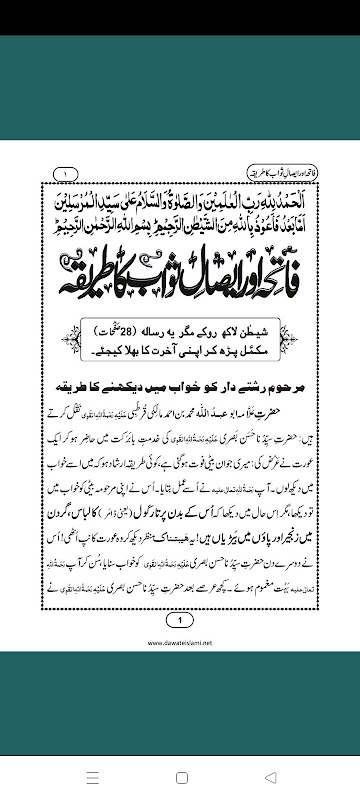 فاتحہ اور ایصالِ ثواب کا طریقہ
۱
اَلْحَمْدُ لِلّٰہِ رَبِّ الْعٰلَمِیْنَ وَالصَّلٰوۃُ وَالسَّلَامُ عَلٰی سَیِّدِ الْمُرْسَلِیْنَ
اَمَّا بَعْدُ فَاَعُوْذُ بِاللّٰہِ مِنَ الشَّیْطٰنِ الرَّجِیْمِ بِسْمِ اللّٰہِ الرَّحْمٰنِ الرَّحِیْمِ
فاتحہ اور ایصالِ ثواب کا طریقہ
شیطٰن لاکھ روکے مگر یہ رسالہ (28 صَفحَات)
مکمَّل پڑھ کر اپنی آخرت کا بھلا کیجئے۔
مرحوم رشتے دار کو خواب میں دیکھنے کا طریقہ
حضرتِ علّامہ ابو عبدُ اللّٰہ محمد بن احمد مالِکی قُرطُبی عَلَیْہِ رَحْمَۃُ اللّٰہِ الْقَوِی نَقْل کرتے
ہیں: حضرتِ سیِّدُنا حَسَن بَصری عَلَیْہِ رَحْمَۃُ اللّٰہِ الْقَوِی کی خدمتِ بابَرَکت میں حاضِر ہو کر ایک
عورت نے عَرْض کی: میری جوان بیٹی فوت ہو گئی ہے، کوئی طریقہ ارشاد ہو کہ میں اسے خواب
میں دیکھ لوں۔ آپ رَحْمَۃُ اللّٰہِ تَعَالٰی عَلَیْہ نے اُسے عمل بتا دیا۔ اُس نے اپنی مرحومہ بیٹی کو خواب میں
تو دیکھا، مگر اِس حال میں دیکھا کہ اُس کے بدن پر تارکول (یعنی ڈامَر) کا لباس، گردن
میں زنجیر اور پاؤں میں بَیڑیاں ہیں! یہ ہَیبتناک منظر دیکھ کر وہ عورت کانپ اُٹھی! اُس
نے دوسرے دن حضرتِ سیِّدُنا حَسَن بَصری عَلَیْہِ رَحْمَۃُ اللّٰہِ الْقَوِی کو خواب سنایا، سُن کر آپ رَحْمَۃُ اللّٰہِ
تَعَالٰی عَلَیْہ بَہُت مغموم ہوئے۔ کچھ عرصے بعد حضرتِ سیِّدُنا حَسَن بَصری عَلَیْہِ رَحْمَۃُ اللّٰہِ الْقَوِی نے
1
www.dawateislami.net